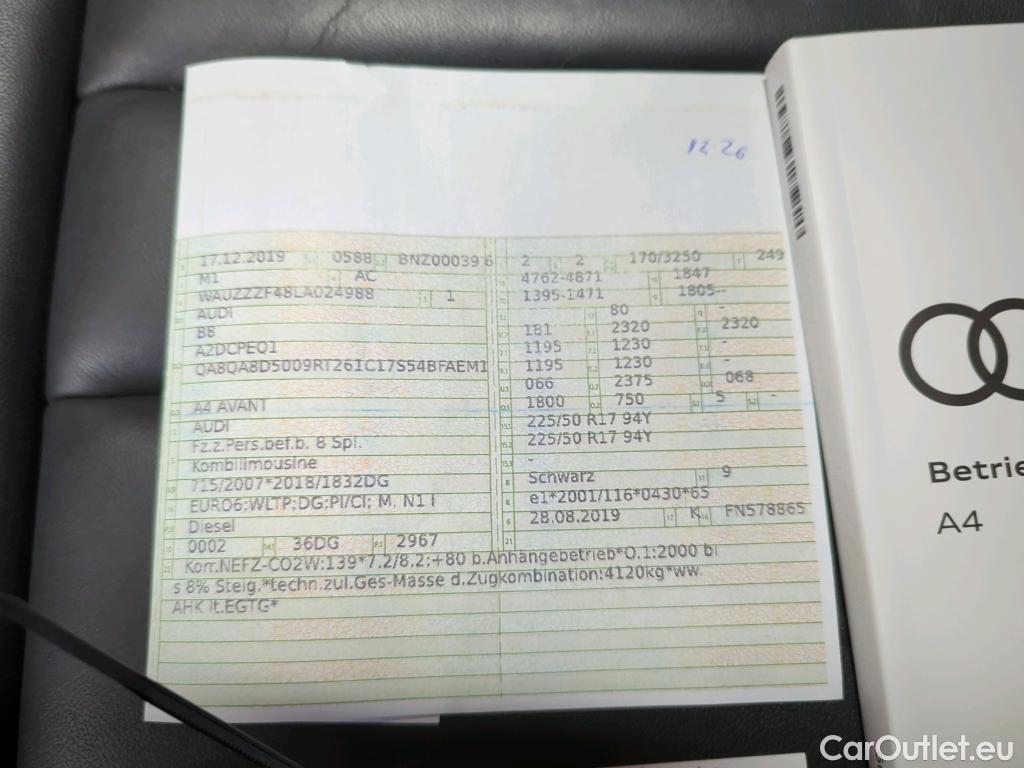 12.26
17.12.2019 0588 BNZ00039 6
M1 AC
WAUZZZF48LA024988 1
AUDI
B8
A2DCPEQ1
QA8QA8D5009RT261C17S54BFAEM1
A4 AVANT
AUDI
Fz.z.Pers.bef.b. 8 Spl.
Kombilimousine
715/2007*2018/1832DG
EURO6;WLTP;DG;PI/CI; M, N1 I
Diesel
0002 36DG 2967
2 2 170/3250 249
4762-4871 1847
1395-1471 1805--
80 -
181 2320 2320
1195 1230 -
1195 1230 -
066 2375 068
1800 750 5 -
225/50 R17 94Y
225/50 R17 94Y
-
Schwarz 9
e1*2001/116*0430*65
28.08.2019 K FN578865
Korr.NEFZ-CO2W:139*7.2/8.2:+80 b.Anhängebetrieb*O.1:2000 bi
s 8% Steig.*techn.zul.Ges-Masse d.Zugkombination:4120kg*ww.
AHK lt.EGTG*
Betrie
A4
CarOutlet.eu